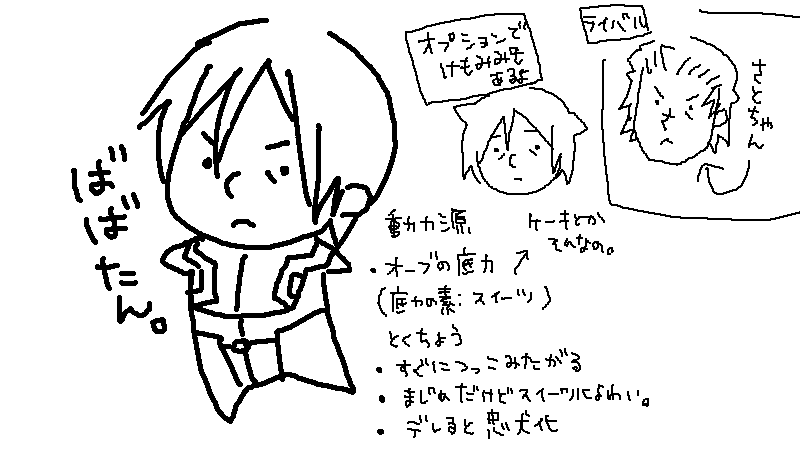 ばばたん。
オプションで
けもみみも
あるよ
ライバル
さとちゃん
動力源
・オーブの底力
ケーキとか
それなの。
(底力の素:スイーツ)
とくちょう
・すぐにつっこみたがる
・まじめだけどスイーツによわい。
・デレると忠犬化